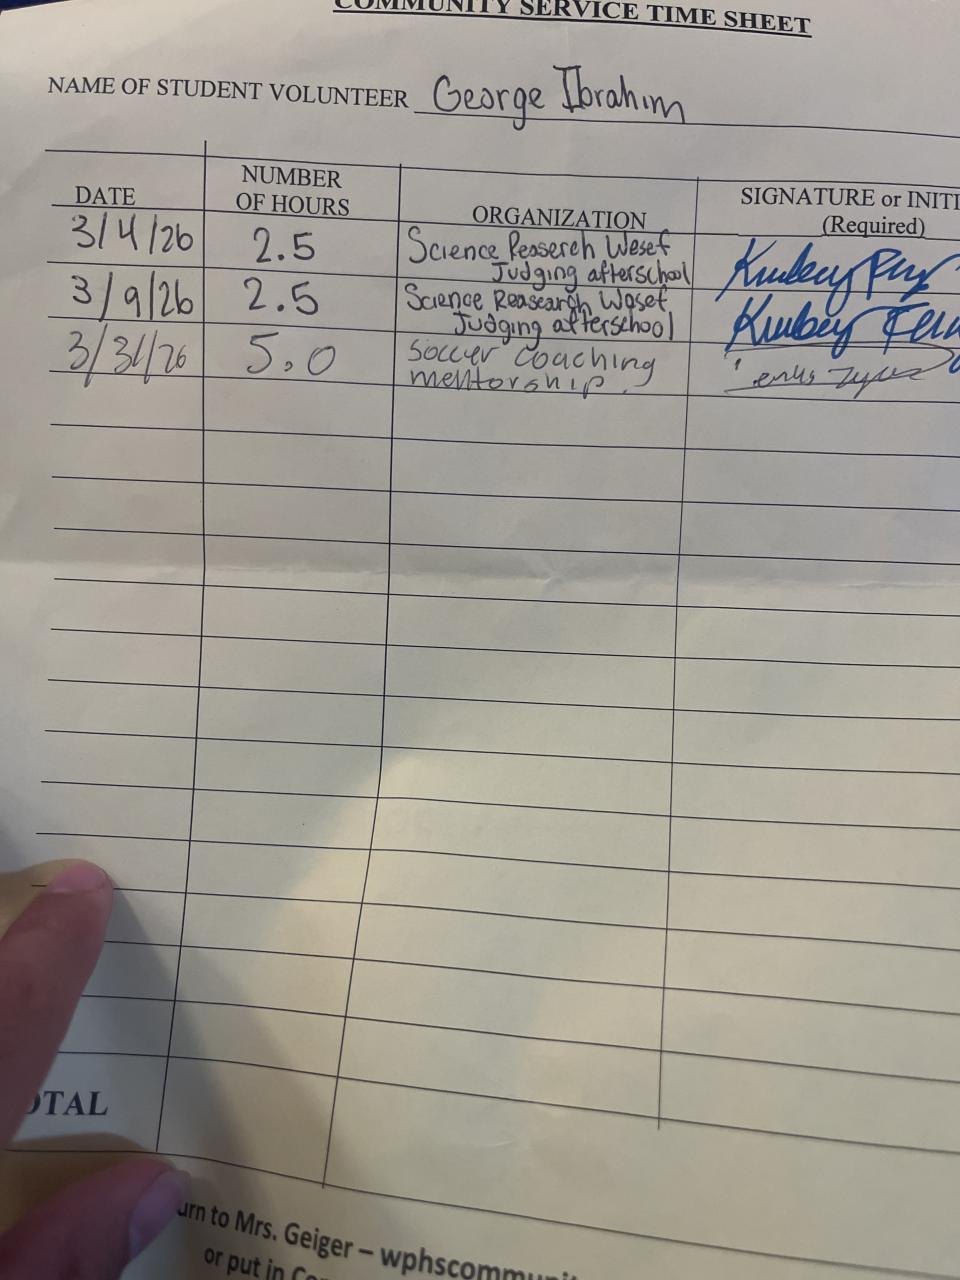 COMMUNITY SERVICE TIME SHEET
NAME OF STUDENT VOLUNTEER George Ibrahim
DATE NUMBER OF HOURS ORGANIZATION SIGNATURE or INITI
(Required)
3/4/26 2.5 Science Reaserch Wesef
Judging afterschool
3/9/26 2.5 Science Reasearch Wesef
Judging afterschool
3/31/26 5.0 soccer coaching
mentorship.
OTAL
urn to Mrs. Geiger – wphscommunit
or put in